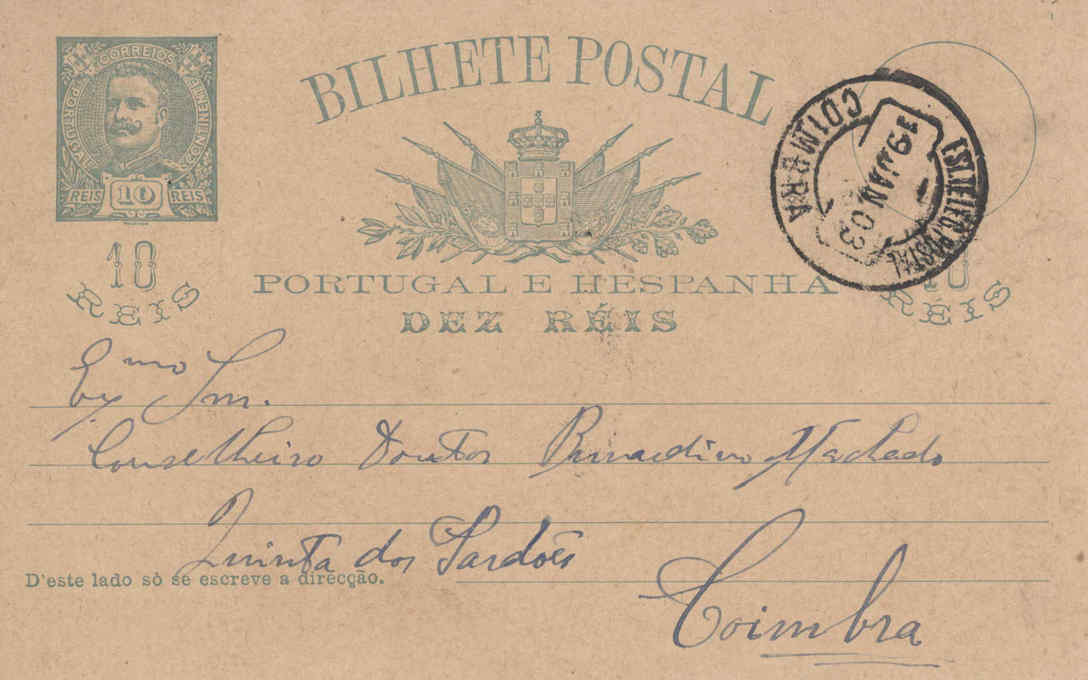 CORREIOS
PORTUGAL
CONTINENTE
REIS 10 REIS
BILHETE POSTAL
COIMBRA
19 JAN 03
POSTAL
10
REIS
10
REIS
PORTUGAL E HESPANHA
DEZ RÉIS
Exmo Snr.
Conselheiro Doutor Bernardino Machado
Quinta dos Sardões
D'este lado só se escreve a direcção.
Coimbra